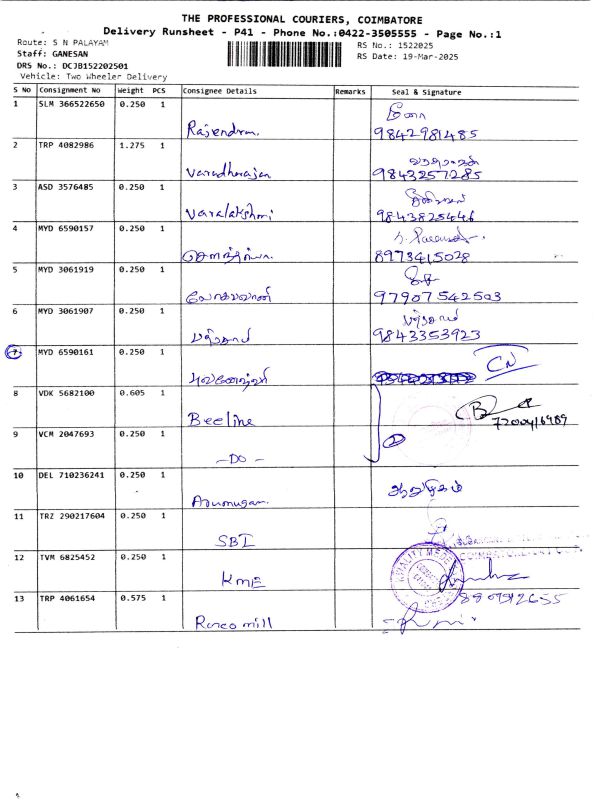 THE PROFESSIONAL COURIERS, COIMBATORE
Delivery Runsheet - P41 - Phone No.:0422-3505555 - Page No.:1
Route: S N PALAYAM
RS No.: 1522025
Staff: GANESAN
RS Date: 19-Mar-2025
DRS No.: DCJB152202501
Vehicle: Two Wheeler Delivery
S No Consignment No Weight PCS Consignee Details Remarks Seal & Signature
1 SLM 366522650 0.250 1
Rajendran. 9842981485
2 TRP 4082986 1.275 1
Varadharajan 9843257285
3 ASD 3576485 0.250 1
Varalakshmi 9843825446
4 MYD 6590157 0.250 1
8973415028
5 MYD 3061919 0.250 1
97907542503
6 MYD 3061907 0.250 1
9843353923
7 MYD 6590161 0.250 1
CN
8 VDK 5682100 0.605 1
Beeline
9 VCM 2047693 0.250 1
2
-DO-
10 DEL 710236241 0.250 1
Arumugam. ஆறுமுகம்
11 TRZ 290217604 0.250 1
SBI
12 TVM 6825452 0.250 1
KME
13 TRP 4061654 0.575 1